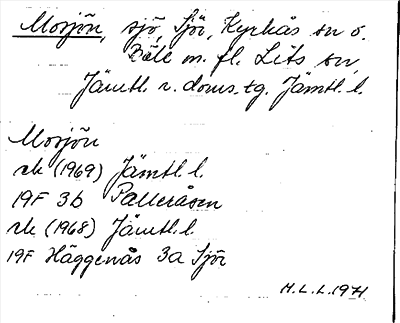 Mosjön, sjö, Sjör, Kyrkås sn o.
Böle m. fl. Lits sn,
Jämtl. n. doms. tg. Jämtl. l.
Mosjön
rek (1969) Jämtl. l.
19F 3b Palleråsen
rek (1968) Jämtl. l.
19F Häggenås 3a Sjör
H.L.L. 1971